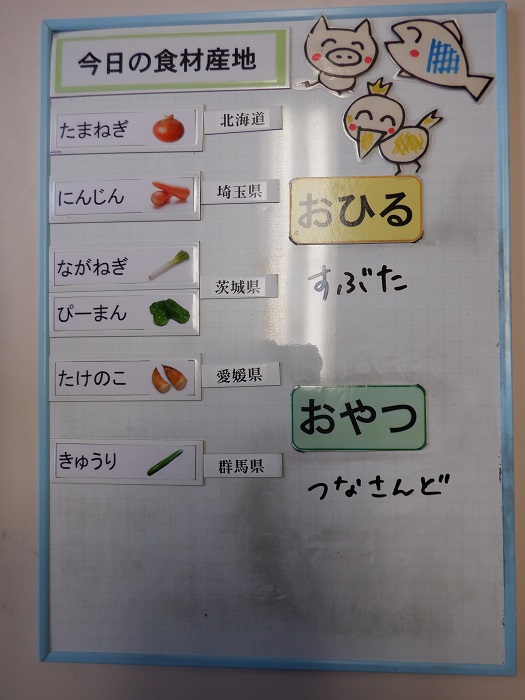 今日の食材産地
たまねぎ 北海道
にんじん 埼玉県
ながねぎ
茨城県
ぴーまん
たけのこ 愛媛県
きゅうり 群馬県
おひる
すぶた
おやつ
つなさんど